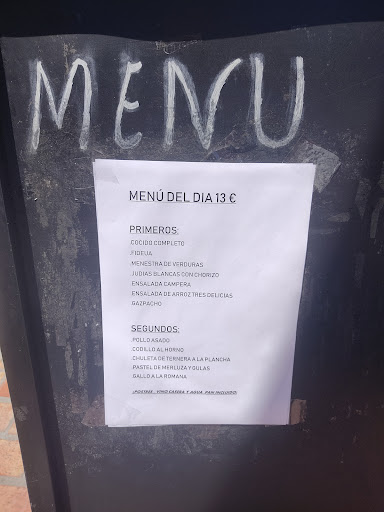 MENU
MENÚ DEL DIA 13 €
PRIMEROS:
COCIDO COMPLETO
FIDEUA
MENESTRA DE VERDURAS
JUDIAS BLANCAS CON CHORIZO
ENSALADA CAMPERA
ENSALADA DE ARROZ TRES DELICIAS
GAZPACHO
SEGUNDOS:
POLLO ASADO
CODILLO AL HORNO
CHULETA DE TERNERA A LA PLANCHA
PASTEL DE MERLUZA Y GULAS
GALLO A LA ROMANA
(POSTRE , VINO CASERA Y AGUA, PAN INCLUIDO)